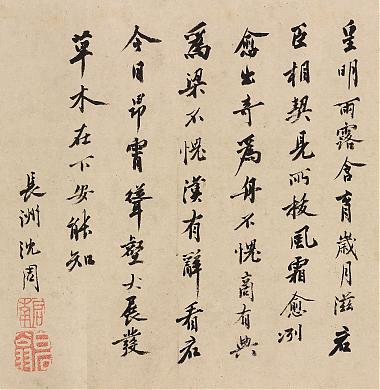 皇明雨露含育歲月滋君
臣相契見所枝風霜愈冽
愈出奇爲舟不愧商有典
爲梁不愧漢有辭看君
今日昂霄聳壑大展發
草木在下安能知
長洲沈周